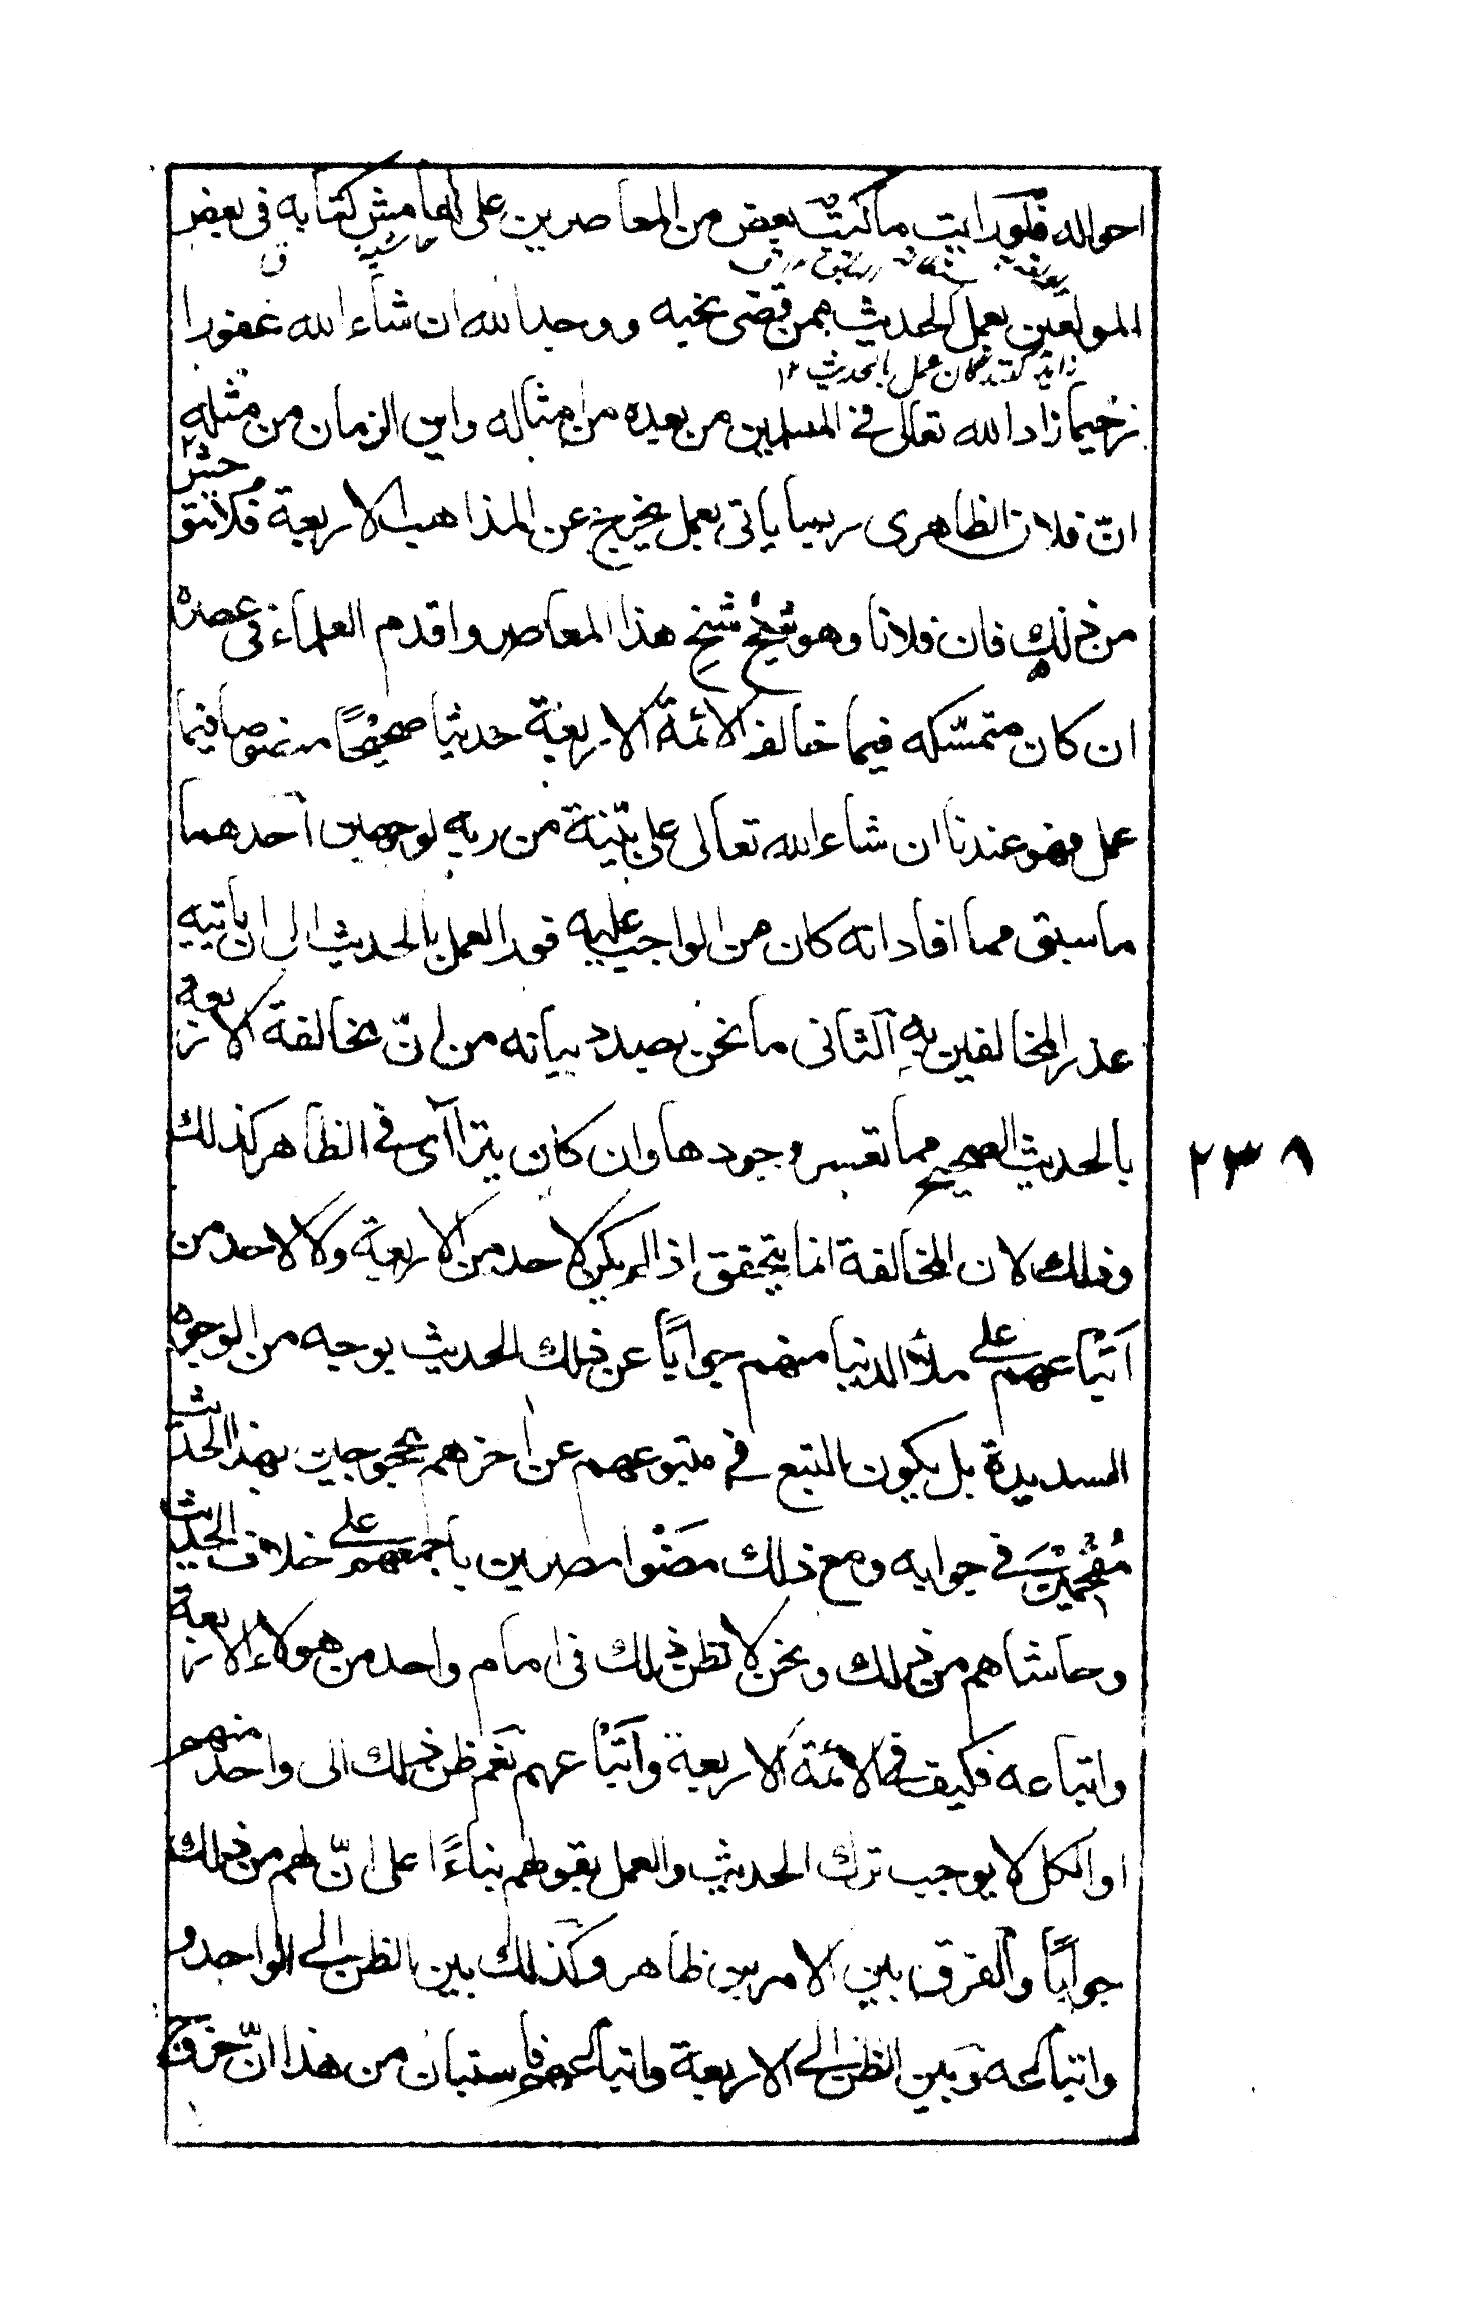 احواله فلو رايت ما كتب بعض من المعاصرين على هامش كتابه فى بعض
المولعين بعمل الحديث ممن قضى نحبه ووجد الله ان شاء الله غفورا
رحيما زاد الله تعالى فى المسلمين من بعده من امثاله واين الزمان من مثله حيث
انّ فلان الظاهرى ربما ياتى بعمل يخرج عن المذاهب الاربعة فلا تثق
من ذلك فان فلانا وهو شيخ شيخ هذا المعاصر واقدم العلماء فى عصره
ان كان متمسّكه فيما خالف الائمة الاربعة حديثا صحيحًا منصوصا فيما
عمل فهو عندنا ان شاء الله تعالى على بيّنة من ربه لوجهين احدهما
ما سبق مما افاد انه كان من الواجب عليه فور العمل بالحديث الى ان ياتيه
عذر المخالفين به الثانى ما نحن بصدد بيانه من انّ مخالفة الاربعة
بالحديث الصحيح مما تعسر وجودها وان كان يتراآى فى الظاهر كذلك
وذلك لان المخالفة انما يتحقق اذا لم يكن لاحد من الاربعة ولا لاحد من
اتباعهم على ملأ الدنيا منهم جوابًا عن ذلك الحديث بوجه من الوجوه
السديدة بل يكون التبع فى متبوعهم عن اخرهم محجوجين بهذا الحديث
مفحمين فى جوابه ومع ذلك مضوا مصرين باجمعهم على خلاف الحديث
وحاشاهم من ذلك ونحن لا نظن ذلك فى امام واحد من هولاء الاربعة
واتباعه فكيف فى الائمة الاربعة واتباعهم نعم ظن ذلك الى واحد منهم
او الكل لا يوجب ترك الحديث والعمل بقولهم بناءًا على انّ لهم من ذلك
جوابًا والفرق بين الامرين ظاهر وكذلك بين الظن الى الواحد و
واتباعه وبين الظن الى الاربعة واتباعهم فاستبان من هذا انّ خروج
٢٣٨